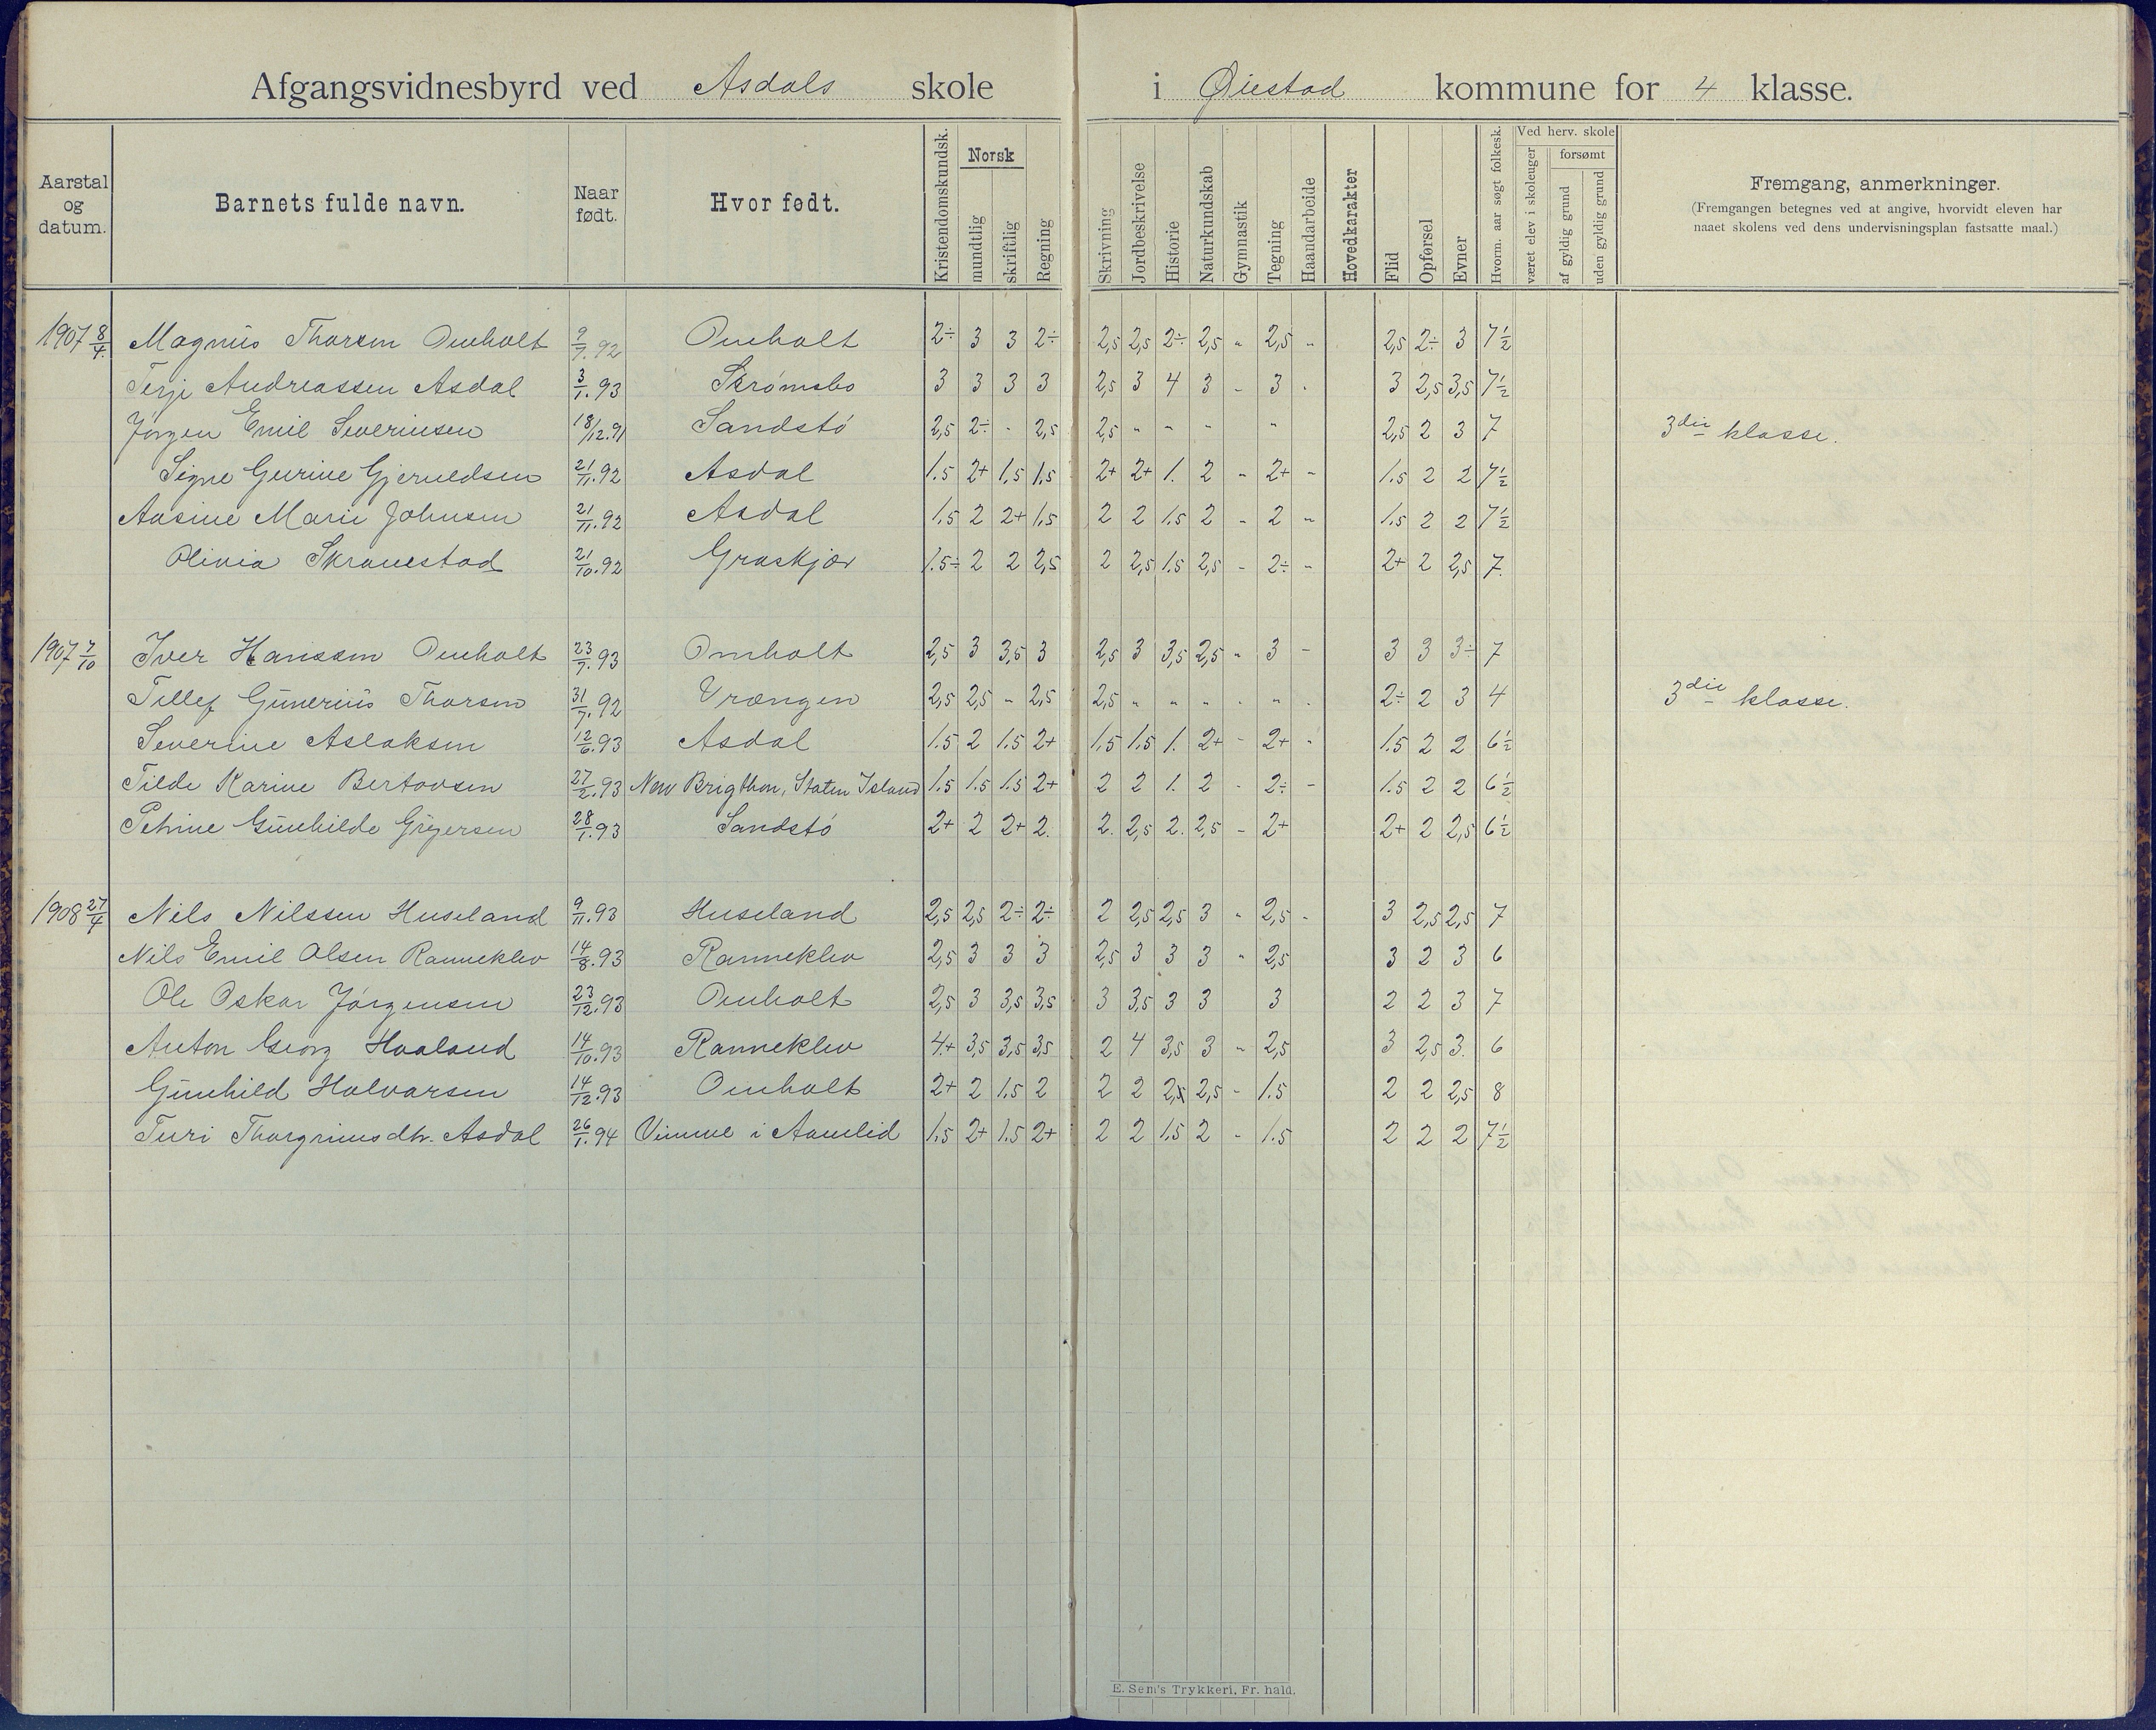 Afgangsvidnesbyrd ved Asdals skole i Øiestad kommune for 4 klasse.
Aarstal og datum. Barnets fulde navn. Naar født. Hvor født. Kristendomskundsk. Norsk mundtlig skriftlig Regning Skrivning Jordbeskrivelse Historie Naturkundskab Gymnastik Tegning Haandarbeide Hovedkarakter Flid Opførsel Evner Hvorm. aar søgt folkesk. Ved herv. skole været elev i skoleuger forsømt af gyldig grund uden gyldig grund Fremgang, anmerkninger.
(Fremgangen betegnes ved at angive, hvorvidt eleven har
naaet skolens ved dens undervisningsplan fastsatte maal.)
1907 8/4. Magnus Thorsen Omholt 9/7.92 Omholt 2÷ 3 3 2÷ 2,5 2,5 2÷ 2,5 „ 2,5 „ 2,5 2÷ 3 7½
Terje Andreassen Asdal 3/1.93 Strømsbo 3 3 3 3 2,5 3 4 3 - 3 . 3 2,5 3,5 7½
Jörgen Emil Severinsen 18/12.91 Sandstö 2,5 2÷ - 2,5 2,5 „ „ „ „ 2,5 2 3 7 3die klasse.
Signe Gurine Gjeruldsen 21/11.92 Asdal 1.5 2+ 1,5 1,5 2+ 2+ 1. 2 - 2+ - 1.5 2 2 7½
Aasine Marie Johnsen 21/11.92 Asdal 1.5 2 2+ 1,5 2 2 1.5 2 - 2 - 1.5 2 2 7½
Olivia Skravestad 21/10.92 Graskjær 1.5÷ 2 2 2,5 2 2,5 1.5 2,5 - 2÷ - 2+ 2 2,5 7.
1907 7/10 Iver Hanssen Omholt 23/7.93 Omholt 2,5 3 3,5 3 2,5 3 3,5 2,5 „ 3 - 3 3 3÷ 7
Tellef Gunerius Thorsen 31/7.92 Vrængen 2,5 2,5 - 2,5 2,5 „ „ „ . „ . 2÷ 2 3 4 3die klasse.
Severine Aslaksen 12/6.93 Asdal 1.5 2 1.5 2+ 1.5 1.5 1. 2+ - 2+ - 1.5 2 2 6½
Tilde Karine Bertovsen 27/2.93 New Brigthon, Staten Island 1.5 1.5 1.5 2+ 2 2 1. 2 - 2÷ - 1.5 2 2 6½
Petrine Gunhilde Gregersen 28/1.93 Sandstö 2+ 2 2+ 2. 2. 2,5 2. 2,5 - 2+ 2+ 2 2,5 6½
1908 27/4 Nils Nilssen Huseland 9/11.93 Huseland 2,5 2,5 2÷ 2÷ 2 2,5 2,5 3 „ 2,5 - 3 2,5 2,5 7
Nils Emil Olsen Ranneklev 14/8.93 Ranneklev 2,5 3 3 3 2,5 3 3 3 „ 2,5 3 2 3 6
Ole Oskar Jörgensen 23/12.93 Omholt 2,5 3 3,5 3,5 3 3,5 3 3 3 2 2 3 7
Anton Georg Haaland 14/10.93 Ranneklev 4+ 3,5 3,5 3,5 2 4 3,5 3 „ 2,5 3 2,5 3. 6
Gunhild Halvorsen 14/12.93 Omholt 2+ 2 1.5 2 2 2 2,5 2,5 - 1.5 2 2 2,5 8
Turi Thorgrimsdtr. Asdal 26/1.94 Vimme i Aamlid 1.5 2+ 1.5 2+ 2 2 1.5 2 - 1.5 2 2 2 7½
E. Sem's Trykkeri, Fr. hald.